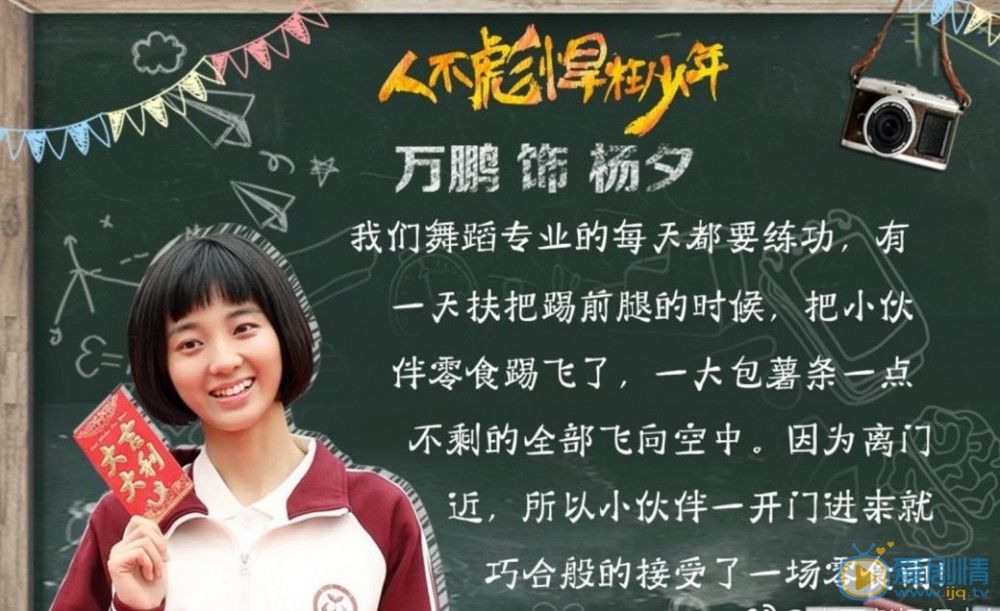 人不彪悍枉少年
万鹏 饰 杨夕
我们舞蹈专业的每天都要练功，有
一天扶把踢前腿的时候，把小伙
伴零食踢飞了，一大包薯条一点
不剩的全部飞向空中。因为离门
近，所以小伙伴一开门进来就
巧合般的接受了一场零食雨！
大吉大利
爱剧情
www.ijq.tv